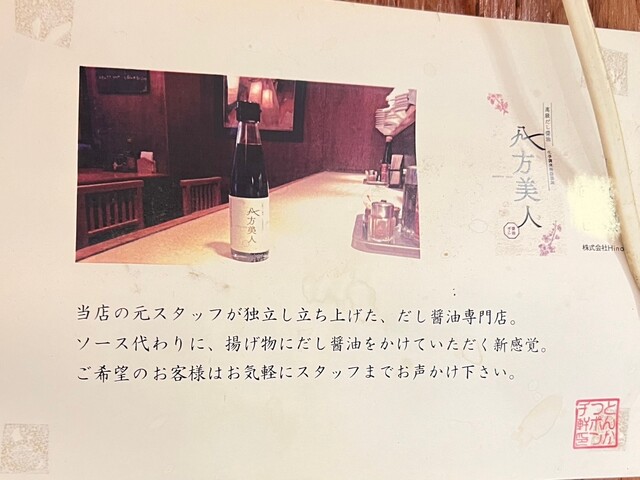 八方美人
高級だし醤油
八方美人
株式会社Hino
当店の元スタッフが独立し立ち上げた、だし醤油専門店。
ソース代わりに、揚げ物にだし醤油をかけていただく新感覚。
ご希望のお客様はお気軽にスタッフまでお声かけ下さい。
とんか
つポン
チ軒